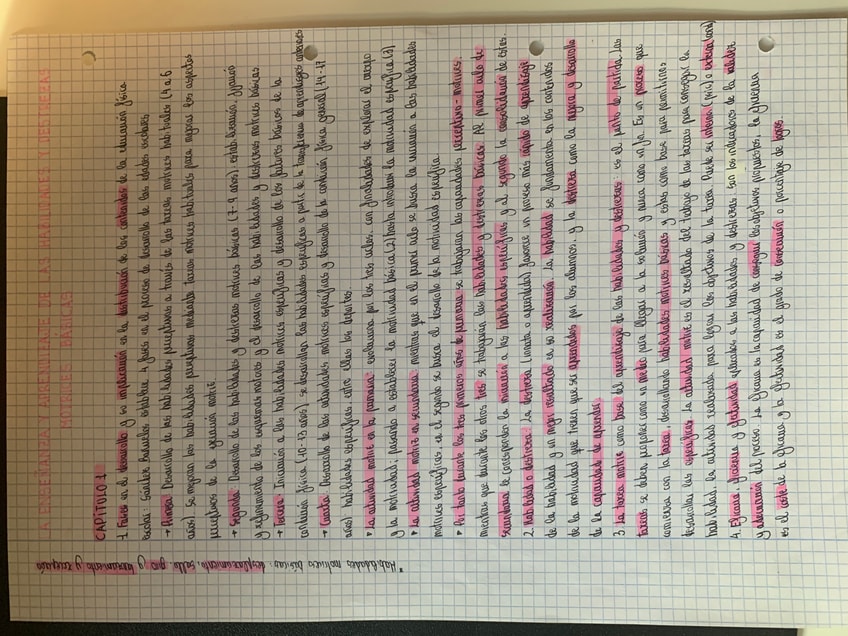 LA ENSEÑANZA Y APRENDIZAJE DE LAS HABILIDADES Y DESTREZAS
MOTRICES BÁSICAS
CAPÍTULO 1
1. Fases en el desarrollo y su implicación en la distribución de los contenidos de la educación física
escolar: Sánchez Bañuelos establece 4 fases en el proceso de desarrollo de las edades escolares
→ Primera: Desarrollo de las habilidades perceptivas a través de las tareas motrices habituales (4 a 6
años). Se mejoran las habilidades perceptivas mediante tareas motrices habituales para mejorar los aspectos
perceptivos de la ejecución motriz
→ Segunda: Desarrollo de las habilidades y destrezas motrices básicas (7-9 años), estabilización, fijación
y refinamiento de los esquemas motores y el desarrollo de las habilidades y destrezas motrices básicas
→ Tercera: Iniciación a las habilidades motrices específicas y desarrollo de los factores básicos de la
condición física (10-13 años): se desarrollan las habilidades específicas a partir de la transferencia de aprendizajes anteriores
→ Cuarta: Desarrollo de las actividades motrices específicas y desarrollo de la condición física general (14-17
años) habilidades específicas entre ellas los deportes.
• La actividad motriz en la primaria: evoluciona por los tres ciclos, con finalidades de explorar el cuerpo
y la motricidad; pasando a establecer la motricidad básica (2) hasta introducir la motricidad específica (3)
• La actividad motriz en secundaria: mientras que en el primer ciclo se busca la iniciación a las habilidades
motrices específicas, en el segundo se busca el desarrollo de la motricidad específica.
• Por tanto durante los tres primeros años de primaria se trabajarán las capacidades perceptivo-motrices
mientras que durante los otros tres se trabajarán las habilidades y destrezas básicas. Al primer ciclo de
secundaria le corresponden la iniciación a las habilidades específicas y al segundo la consolidación de estas
2. Habilidad o destreza: La destreza (innata o aprendida) favorece un proceso más rápido de aprendizaje
de la habilidad y un mejor resultado en su realización. La habilidad se fundamenta en los contenidos
de la motricidad que tienen que ser aprendidos por los alumnos, y la destreza como la mejora y desarrollo
de la capacidad de aprender.
3. La tarea motriz como base del aprendizaje de las habilidades y destrezas: es el punto de partida. Las
tareas se deben proponer como un medio para llegar a la solución y nunca como un fin. Es un proceso que
comienza con la tarea, desarrollando habilidades motrices básicas y estas como base para permitirnos
desarrollar las específicas. La actividad motriz es el resultado del trabajo de las tareas para conseguir la
habilidad, la actividad realizada para lograr los objetivos de la tarea. Puede ser interna (psic) o externa (cond)
4. Eficacia, eficiencia y efectividad aplicados a las habilidades y destrezas: son los indicadores de la validez
y adecuación del proceso. La eficacia es la capacidad de conseguir los objetivos propuestos, la eficiencia
es el coste de la eficacia y la efectividad es el grado de consecución o porcentaje de logros.
*Habilidades motrices básicas: desplazamiento, salto, giro y lanzamiento y recepción